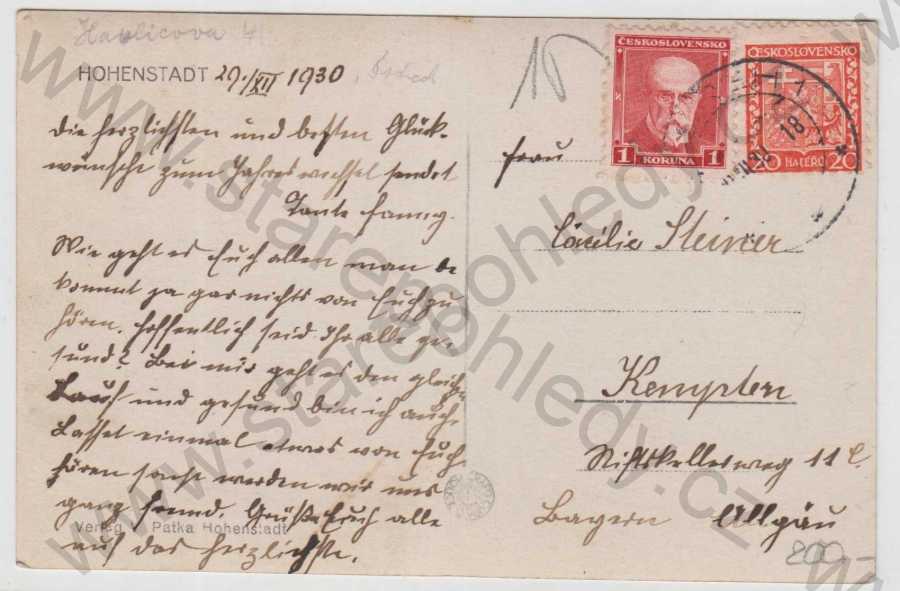 Havlicova
HOHENSTADT 29./XII 1930
Die herzlichsten und besten Glück-
wünsche zum Jahreswechsel sendet
Tante Fanny.
Wie geht es Euch allen man be
kommt ja gar nichts von Euch zu
hören. Hoffentlich seid Ihr alle ge-
sund? Bei mir geht es den gleichen
Lauf und gesund bin ich auch.
Lasset einmal etwas von Euch
hören sonst werden wir uns
ganz fremd. Grüße Euch alle
auf das herzlichste.
Verlag Patka Hohenstadt
ČESKOSLOVENSKO
1 KORUNA 1
ČESKOSLOVENSKO
20 HALÉŘŮ 20
18
Frau
Cäcilie Steiner
Kempten
Stiftskellerweg 11
Bayern Allgäu
200,-
www.starepohledy.cz